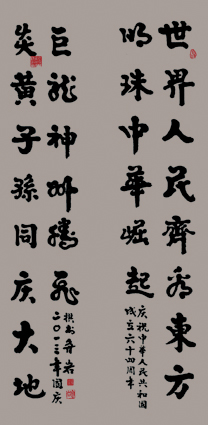 世界人民齊看東方
明珠中華崛起
庆祝中华人民共和国
成立六十四周年
巨龙神州騰飛
撰书
二〇一三年國庆
炎黃子孫同庆大地